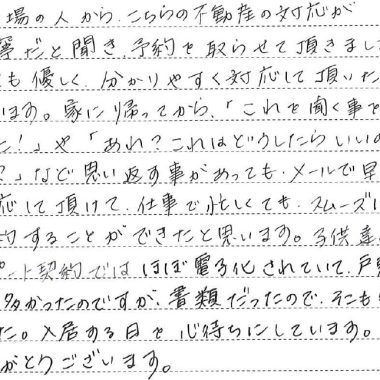 場の人から、こちらの不動産の対応が
寧だと聞き、予約を取らせて頂きまし
も優しく、分かりやすく対応して頂いた
います。家に帰ってから、「これを聞く事を
た!」や「あれ?これはどうしたらいいの
?」など思い返す事があっても、メールで早
応して頂けて、仕事で忙しくても、スムーズに
約することができたと思います。子供達
ート契約ではほぼ電子化されていて、戸
多かったのですが、書類だったので、そこも
た。入居する日を心待ちにしています。
がとうございます。